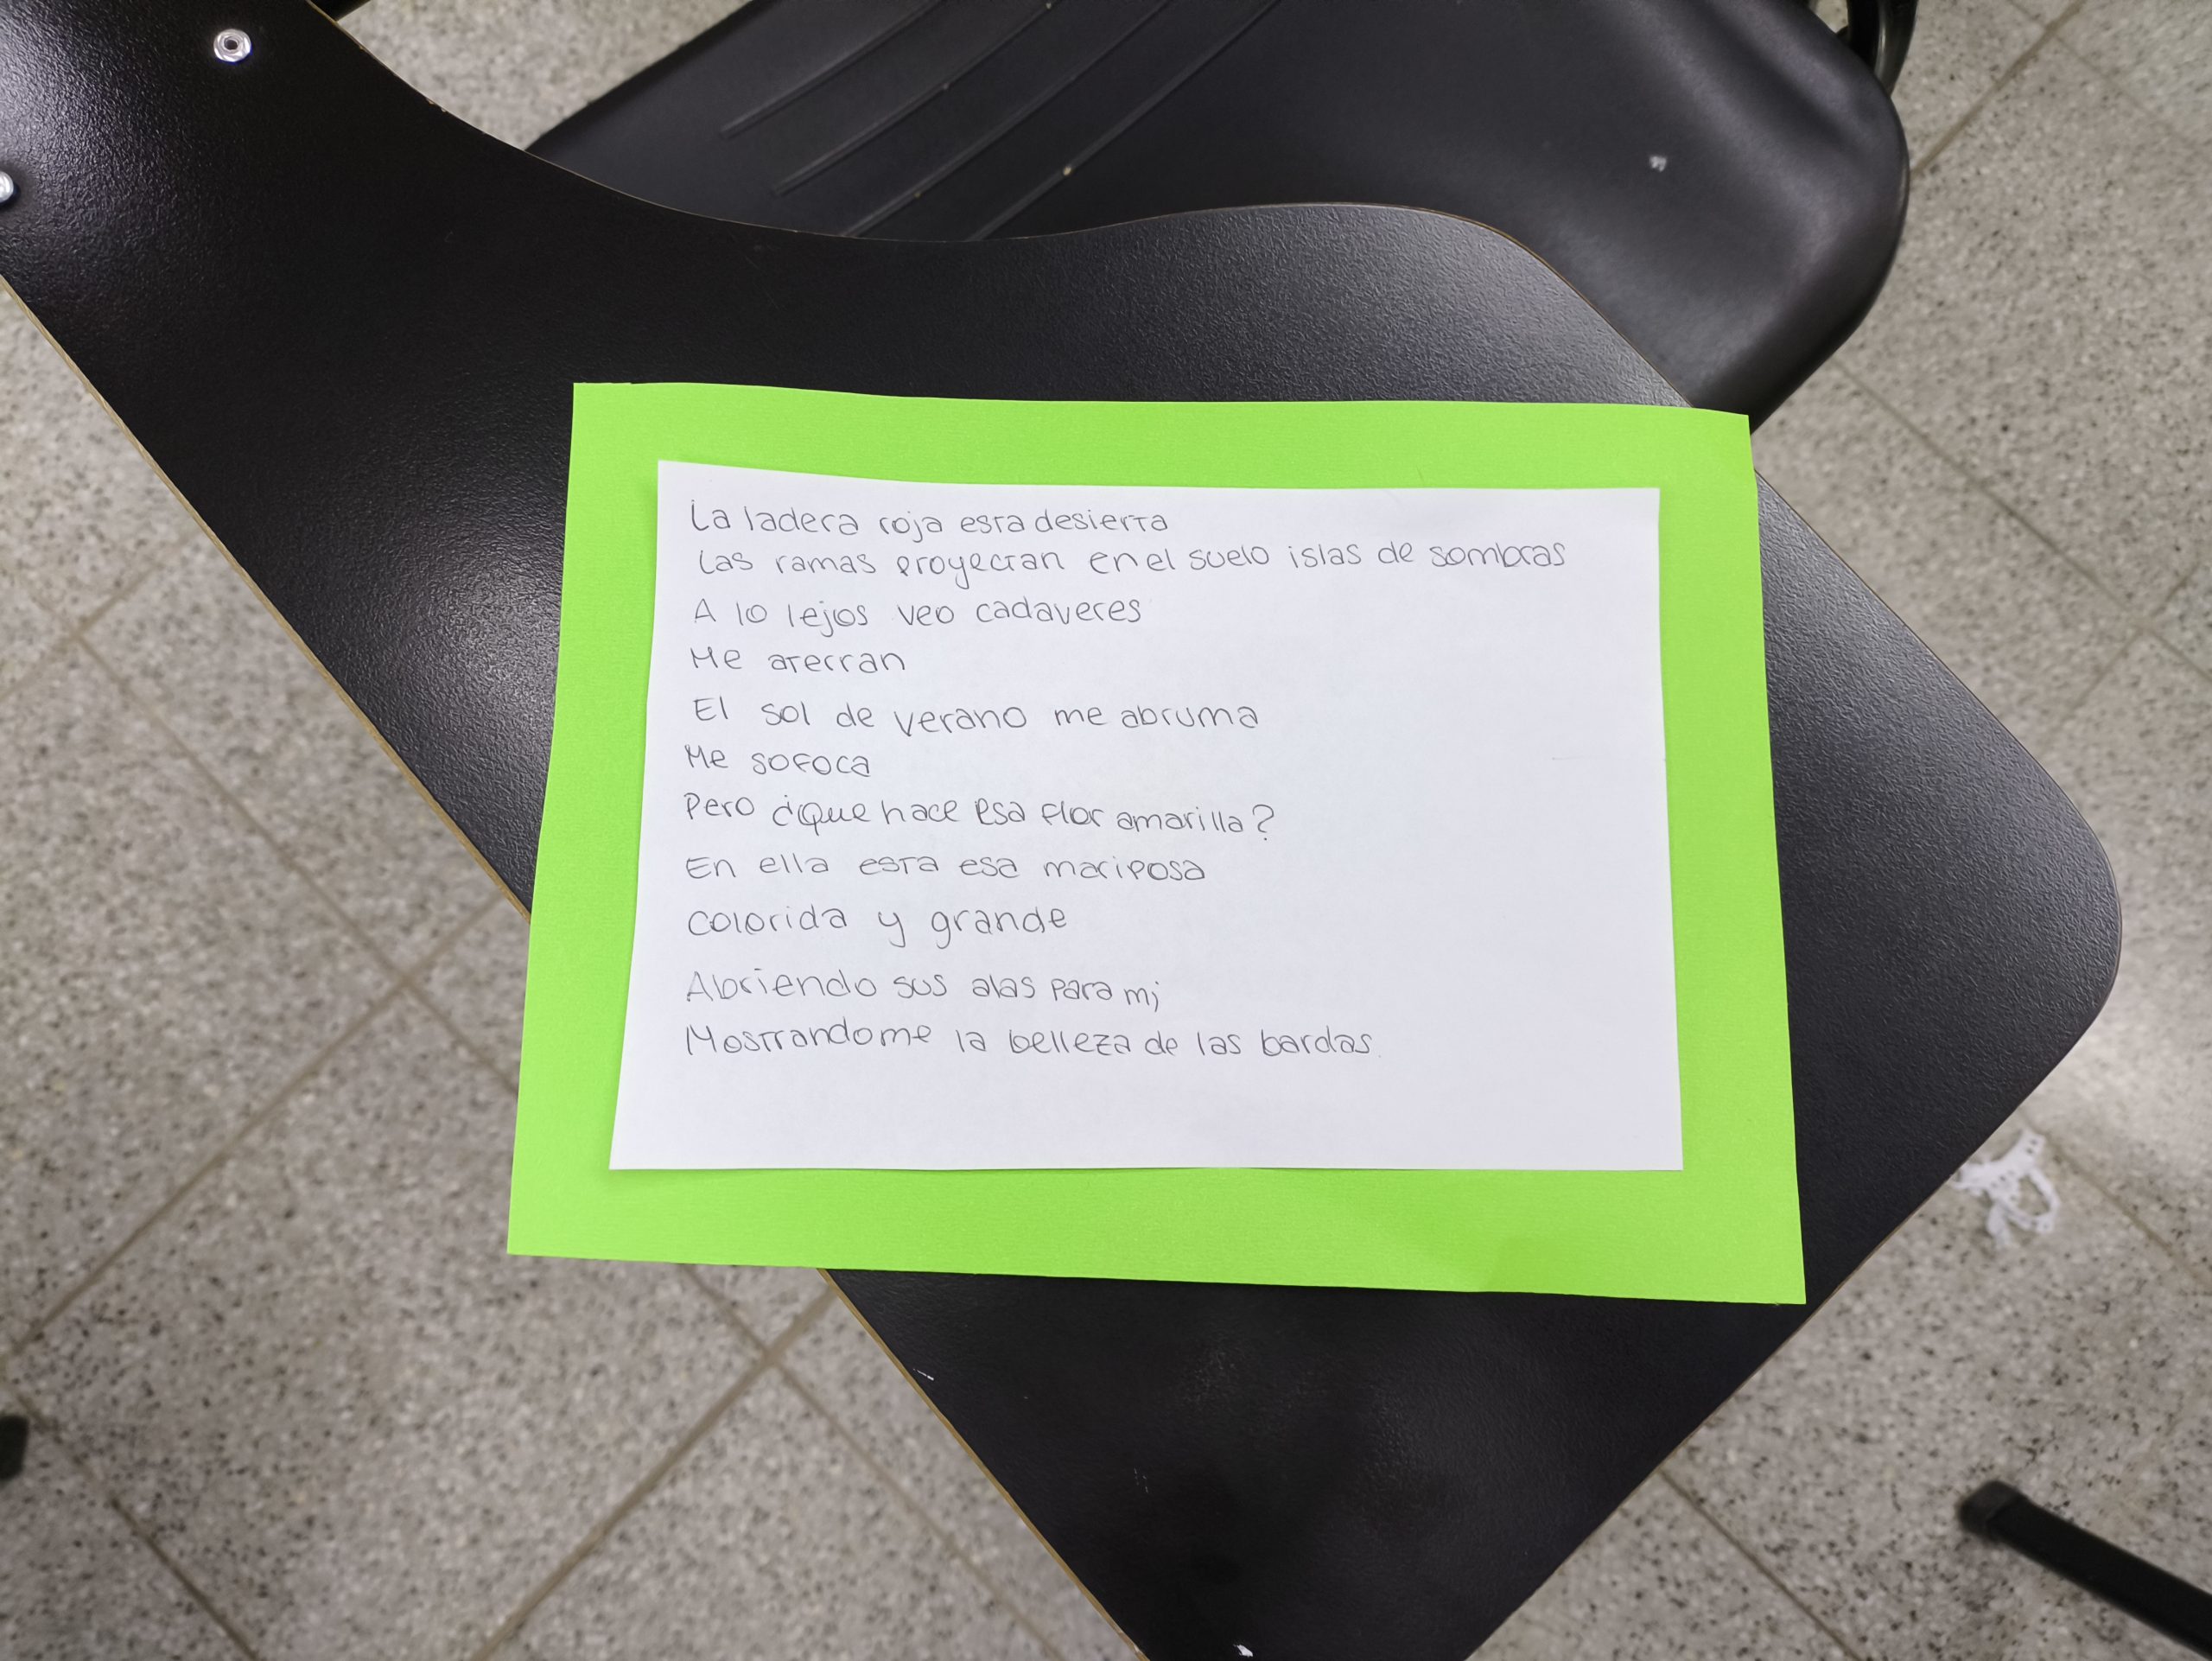 La ladera roja esta desierta
Las ramas proyectan en el suelo islas de sombras
A lo lejos veo cadaveres
Me aterran
El sol de verano me abruma
Me sofoca
Pero ¿que hace esa flor amarilla?
En ella esta esa mariposa
Colorida y grande
Abriendo sus alas para mi
Mostrandome la belleza de las bardas.